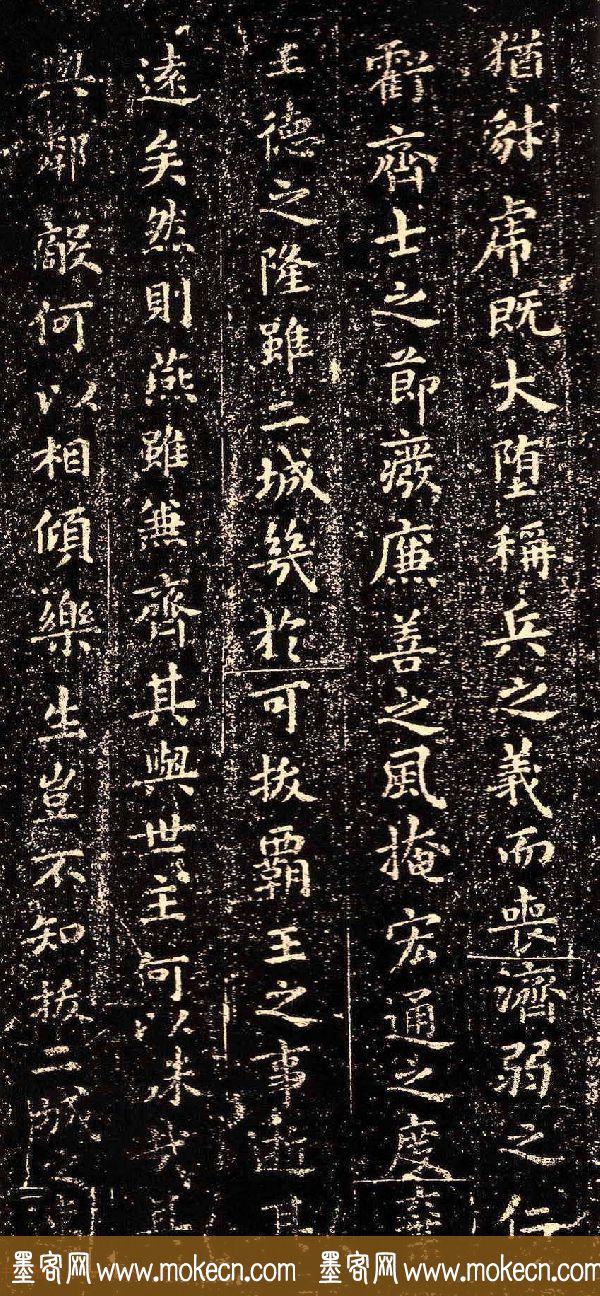 猶豺虎既大堕稱兵之義而喪濟弱之仁
虧齊士之節廢廉善之風掩宏通之度棄
王德之隆雖二城幾於可拔霸王之事逝其
遠矣然則燕雖兼齊其與世主何以殊哉其
與鄰敵何以相傾樂生豈不知拔二城之速
墨客网 www.mokecn.com 墨客网 www.mokecn.com